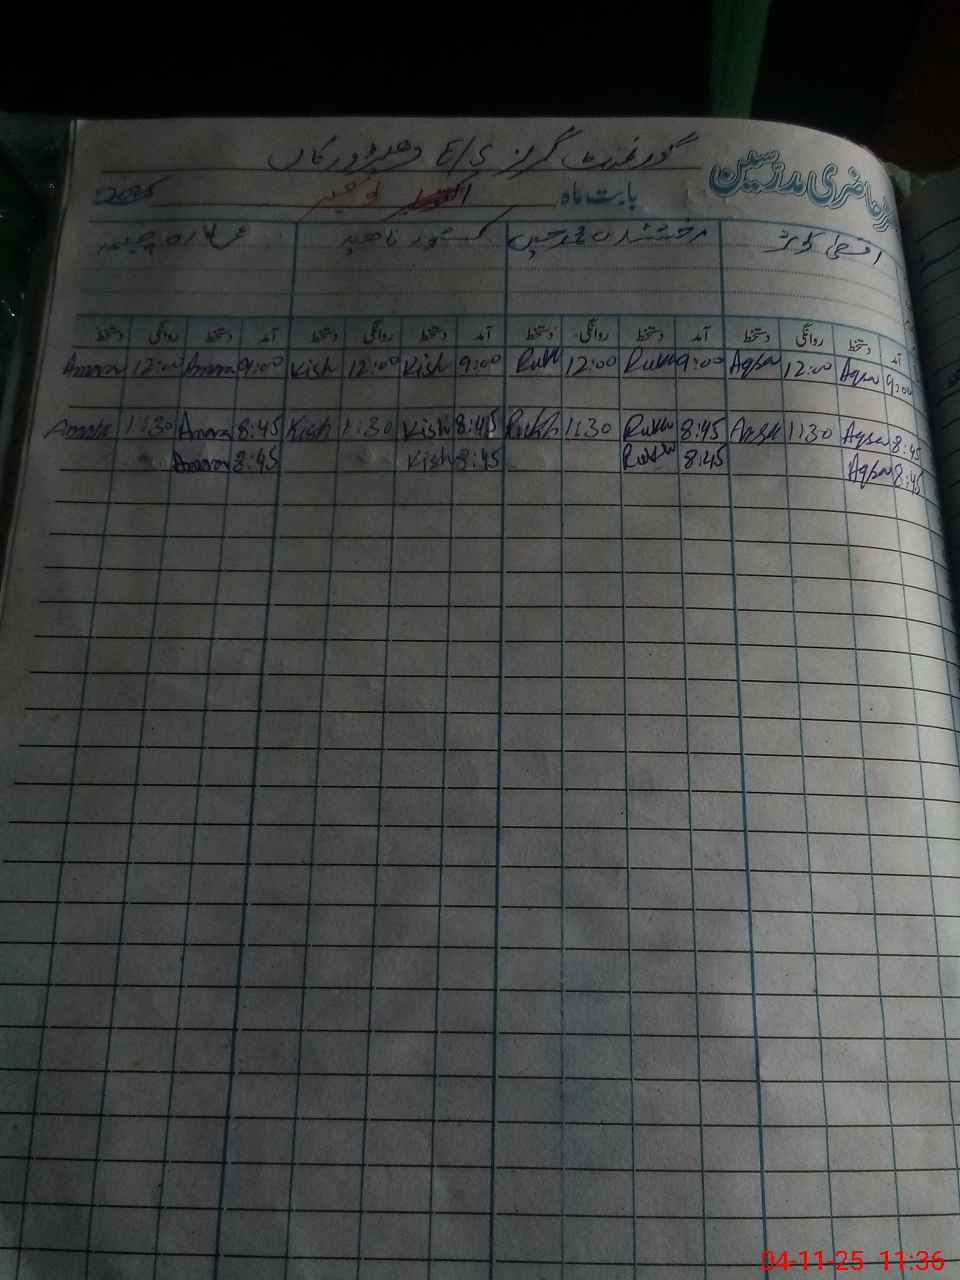 گورنمنٹ گرلز E/S
حاضری مدرسین
بابت ماہ نومبر 2025
اقصیٰ کوثر کشور ناہید
آمد دستخط روانگی دستخط آمد دستخط روانگی دستخط آمد دستخط روانگی دستخط آمد دستخط روانگی دستخط
9:00 Aqsa 12:00 Aqsa 9:00 Rukh 12:00 Rukh 9:00 Kish 12:00 Kish 9:00 Amara 12:00 Amara
8:45 Aqsa 11:30 Aqsa 8:45 Rukh 11:30 Rukh 8:45 Kish 11:30 Kish 8:45 Amara 11:30 Amara
8:45 Aqsa 8:45 Rukh 8:45 Kish 8:45 Amara
04-11-25 11:36